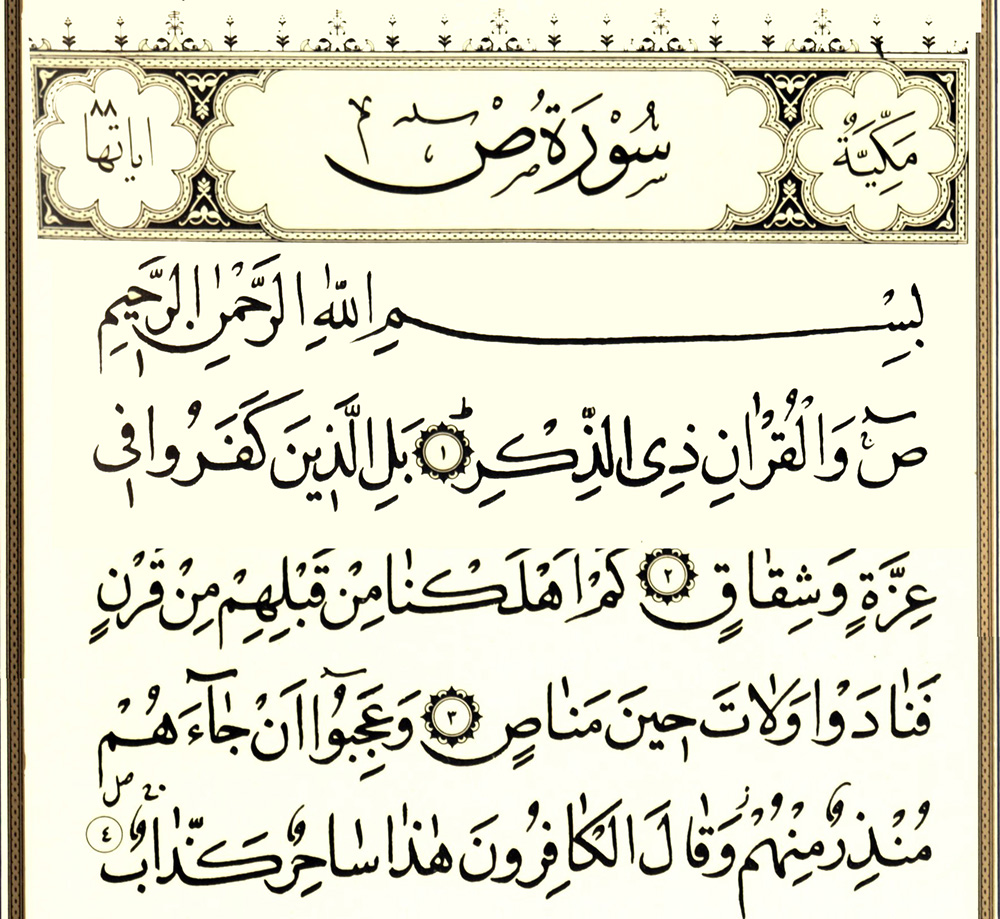 مَكِّيَّةٌ
سُوْرَةُ صۤ
اياتها ٨٨
بِسْمِ اللّٰهِ الرَّحْمٰنِ الرَّحٖيمِ
صۤ وَالْقُرْاٰنِ ذِى الذِّكْرِؕ ١ بَلِ الَّذٖينَ كَفَرُوا فٖى
عِزَّةٍ وَشِقَاقٍ ٢ كَمْ اَهْلَكْنَا مِنْ قَبْلِهِمْ مِنْ قَرْنٍ
فَنَادَوْا وَلَاتَ حٖينَ مَنَاصٍ ٣ وَعَجِبُٓوا اَنْ جَٓاءَهُمْ
مُنْذِرٌ مِنْهُمْؗ وَقَالَ الْكَافِرُونَ هٰذَا سَاحِرٌ كَذَّابٌۚ ٤